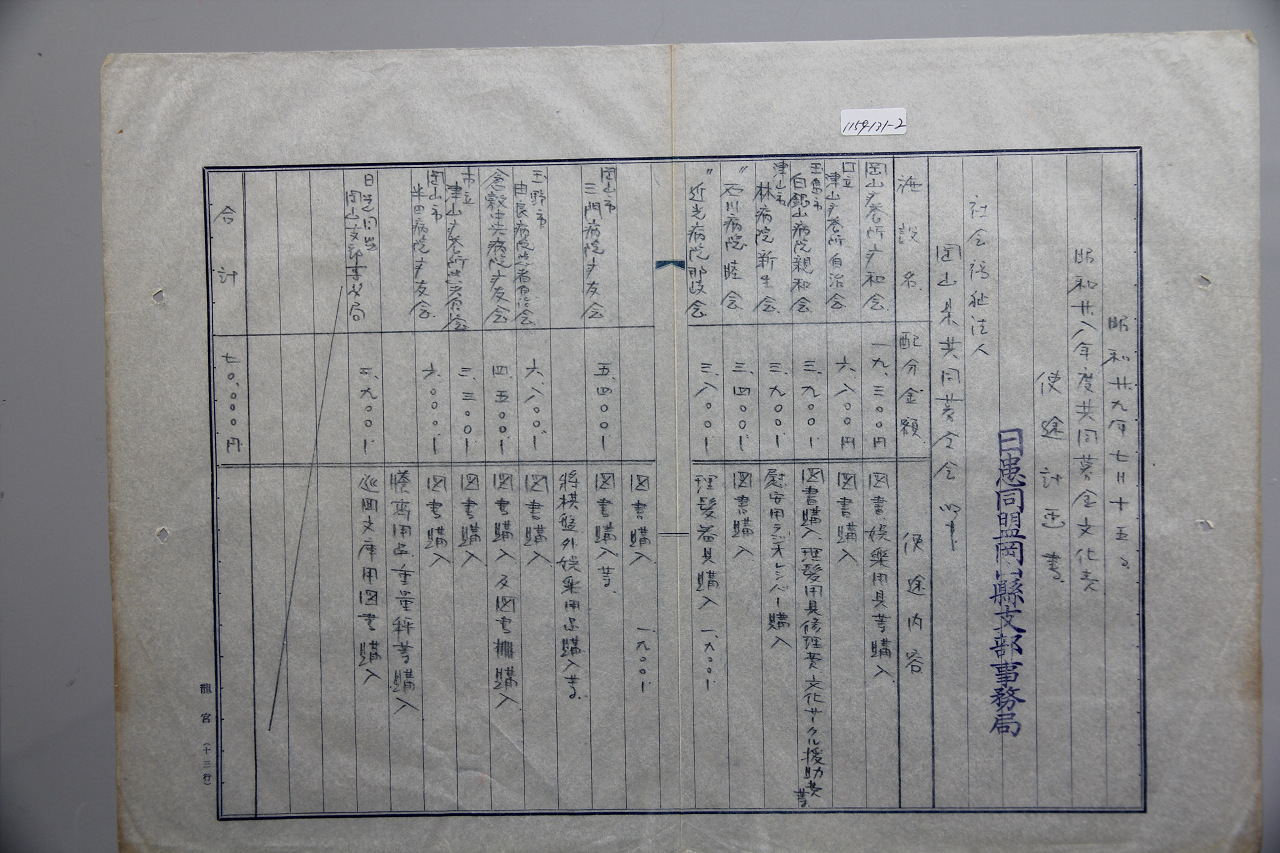 1154-131-2
昭和廿九年七月十五日
昭和廿八年度共同募金文化費
使途計画書
日患同盟岡山縣支部事務局
社会福祉法人
岡山県共同募金会 御中
施設名 配分金額 使途内容
岡山療養所療和会 一九、三〇〇円 図書娯楽用具等購入
国立津山療養所自治会 六、八〇〇円 図書購入
玉島市白銀山病院親和会 三、九〇〇〃 図書購入、理髪用具修理費文化サークル援助費等
津山市林病院新生会 三、九〇〇〃 慰安用ラジオレシーバー購入
〃石川病院睦会 三、四〇〇〃 図書購入
〃近光病院那岐会 三、八〇〇〃 理髪器具購入 一、九〇〇〃
図書購入 一、九〇〇〃
岡山市三門病院療友会 五、四〇〇〃 図書購入等
将棋盤外娯楽用品購入等
玉野市由良病院患者自治会 六、八〇〇〃 図書購入
倉敷中央病院療友会 四、五〇〇〃 図書購入及図書棚購入
市立津山療養所 三、三〇〇〃 図書購入
岡山市半田病院療友会 六、〇〇〇〃 図書購入
謄写用品重量秤等購入
日患同盟岡山支部事務局 三、九〇〇〃 巡回文庫用図書購入
合計 七〇、〇〇〇円
龍宮（十三行）